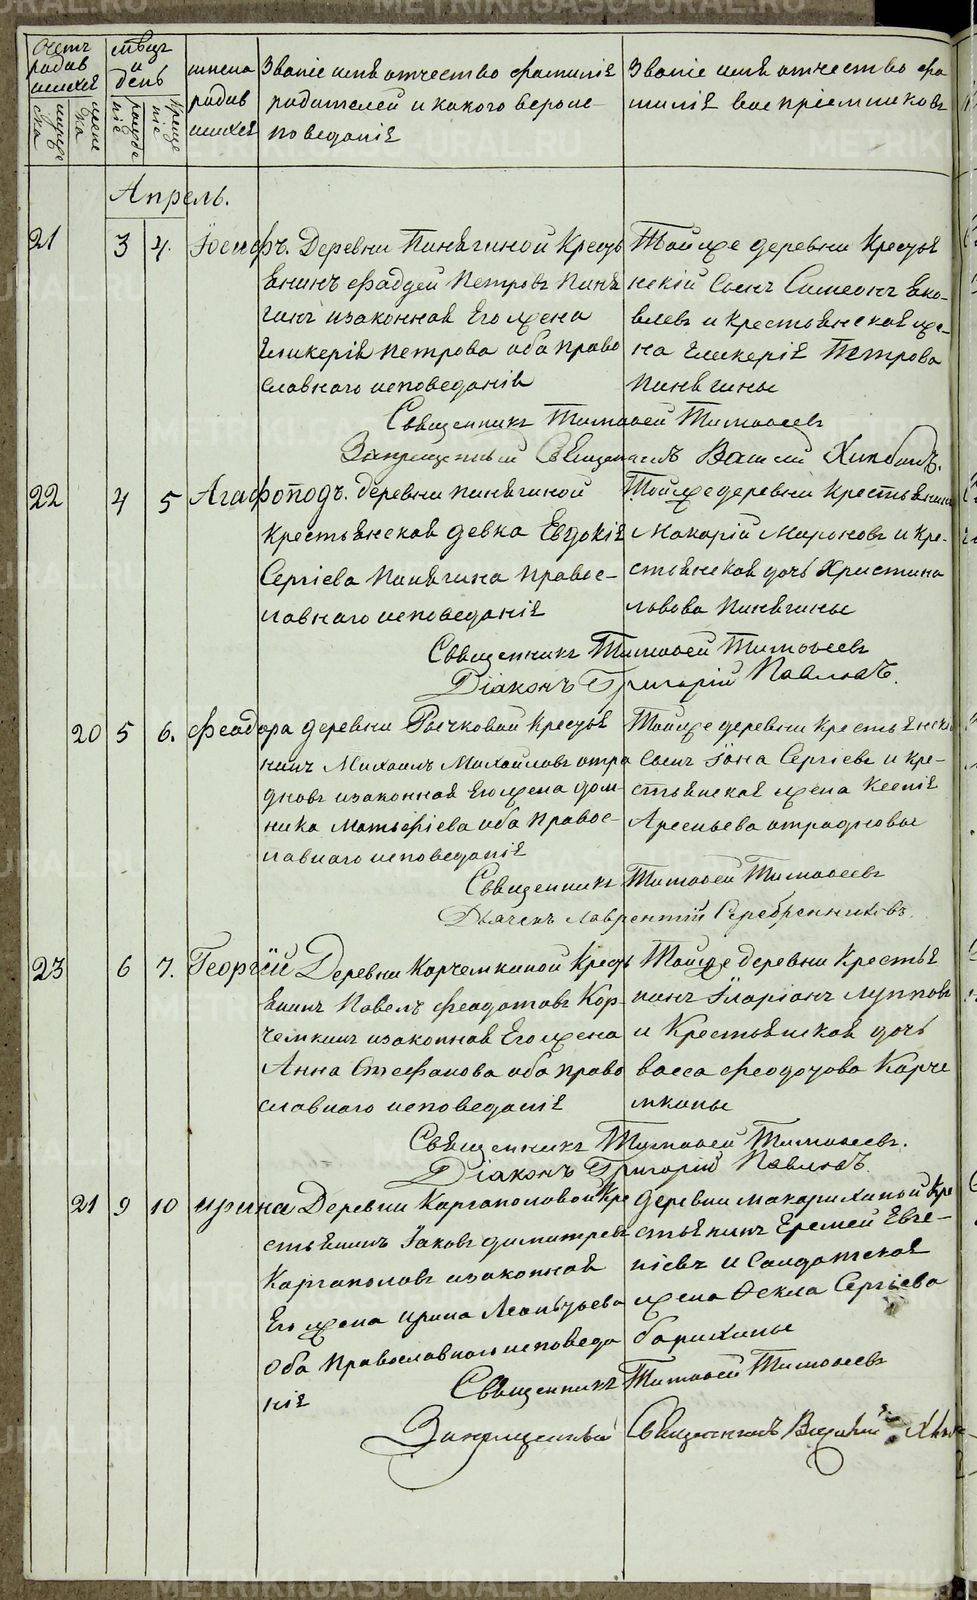 METRIKI.GASU-URAL.RU
Счетъ родившихся
мѣсяцъ и день
имена родившихся
Званіе имя отчество фамилія родителей и какого вѣроисповеданія
Званіе имя отчество фамилія воспріемниковъ
мужеска
женска
рожденіе
крещеніе
Апрель.
21 3 4. Іосифъ. Деревни Пинягиной Крестья
янинъ Фаддей Петровъ Пиня
гинъ изаконная Его жена
Гликерія Петрова оба право
славнаго исповеданія
Тойже деревни Кресья
нскій Сынъ Симеонъ Яко-
влевъ и крестьянская же-
на Гликерія Петрова
Пинягины
Священникъ Тимофей Тимофеевъ
Запрещенный Священникъ Василій
22 4 5 Агафоподъ. деревни пинягиной
крестьянская девка Евдокія
Сергіева Пинягина Правос-
лавнаго исповеданія
Тойже деревни Крестьянинъ
Макарій Мироновъ и кре-
стьянская дочь Христина
Львова Пинягины
Священникъ Тимофей Тимофеевъ
Діаконъ Григорій Павловъ.
20 5 6. Феодора деревни Рычковой кресья
нинъ Михаилъ Михайловъ отра
дновъ изаконная Его жена дом-
ника Матьфіева оба Правос-
лавнаго исповеданія
Тойже деревни крестьянски
Сынъ Іона Сергіевъ и кре-
стьянская жена Ксенія
Арсеньева отрадновы
Священникъ Тимофей Тимофеевъ
Дьячекъ Лаврентій Серебренниковъ.
23 6 7. Георгій Деревни Корчемкиной Кресть
янинъ Павелъ Феодотовъ Кор-
чемкинъ изаконная Его жена
Анна Стефанова оба право
славнаго исповеданія
Тойже деревни Крестья
нинъ Іларіонъ Лупповъ
и Крестьянская дочь
Васса Феодотова Корче
мкины
Священникъ Тимофей Тимофеевъ.
Діаконъ Григорій Павловъ.
21 9 10 Ирина Деревни Каргаполовой Кре
стьянинъ Іаковъ димитревъ
Каргаполовъ изаконная
Его жена ирина Леонтьева
Оба Православнаго исповеда
нія
деревни макарихиной Кре
стьянинъ Еремей Евге-
ніевъ и Солдатская
жена Фекла Сергіева
барихины
Священникъ Тимофей Тимофеевъ
Запрещенный Священникъ Василій